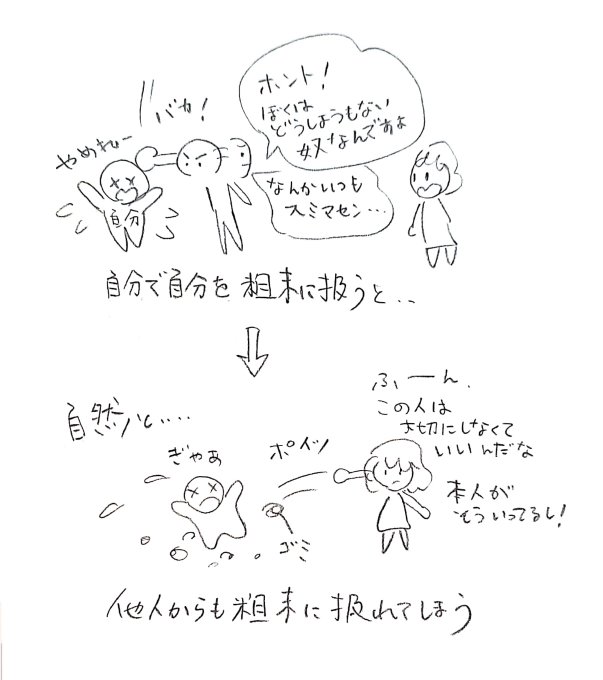 ホント！
ぼくは
どうしようもない
奴なんですよ
バカ！
やめれー
自分
なんかいつも
スミマセン…
自分で自分を粗末に扱うと..
ふーん、
この人は
大切にしなくて
いいんだな
本人が
そういってるし！
自然と….
ぎゃあ
ポイッ
ゴミ
他人からも粗末に扱れてしまう